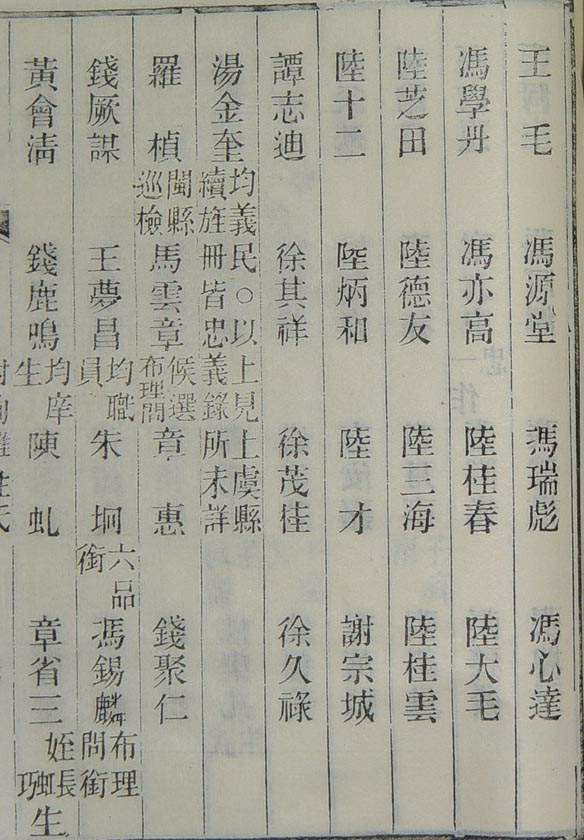 王毛　馮源堂　馮瑞彪　馮心達
馮學丹　馮亦高　陸桂春　陸大毛
陸芝田　陸德友　陸三海　陸桂雲
陸十二　陸炳和　陸才　謝宗城
譚志迪　徐其祥　徐茂桂　徐久祿
湯金奎　均義民○以上見上虞縣續旌冊皆忠義錄所未詳
羅楨　閩縣巡檢　馬雲章　候選布理問　章惠　錢聚仁
錢厥謀　王夢昌　均職員　朱坰　六品銜　馮錫麟　布理問銜
黃會淸　錢鹿鳴　均庠生　陳虬　章省三　姪長生虹巧